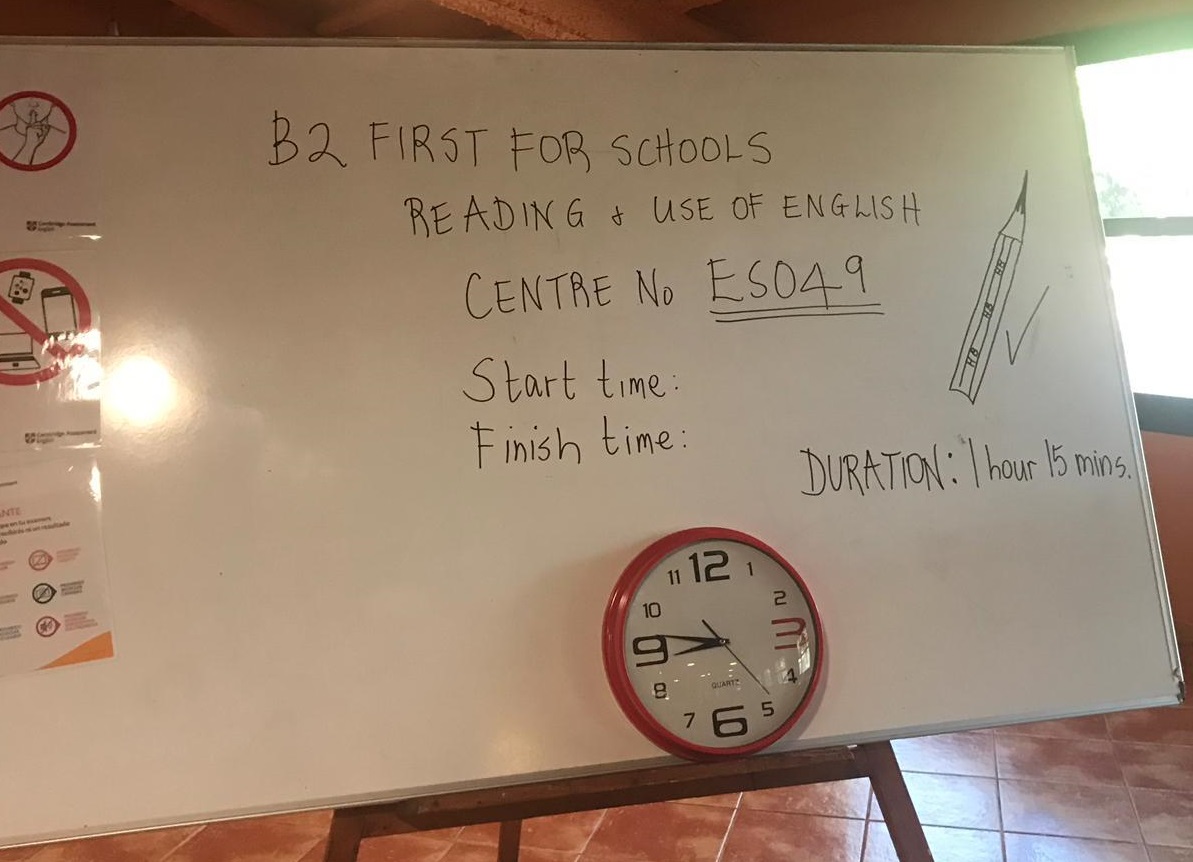 B2 FIRST FOR SCHOOLS
READING & USE OF ENGLISH
CENTRE No ES049
Start time:
Finish time:
DURATION: 1 hour 15 mins.
HB
HB
HB
Cambridge Assessment
English
Cambridge Assessment
English
12
1
2
3
4
5
6
7
8
9
10
11
QUARTZ